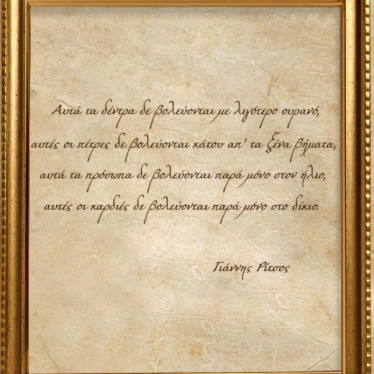 Αυτά τα δέντρα δε βολεύονται με λιγότερο ουρανό,
αυτές οι πέτρες δε βολεύονται κάτου απ' τα ξένα βήματα,
αυτά τα πρόσωπα δε βολεύονται παρά μόνο στον ήλιο,
αυτές οι καρδιές δε βολεύονται παρά μόνο στο δίκιο.
Γιάννης Ρίτσος